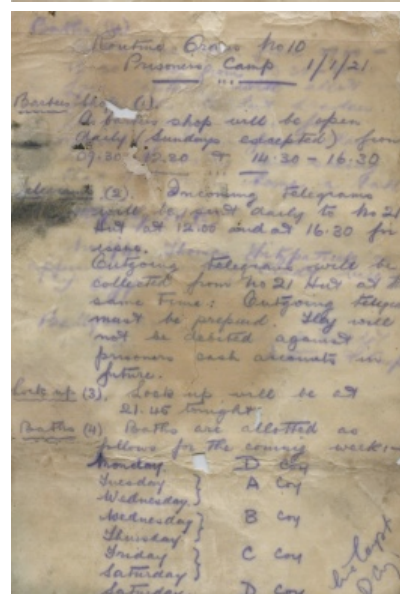 Routine Orders No 10
Prisoners Camp 1/1/21
Barbers Shop (1).
A barbers shop will be open
daily (Sundays excepted) from
09.30 - 12.20 & 14.30 - 16.30
Telegrams (2). Incoming telegrams
will be sent daily to No 21
Hut at 12.00 and at 16.30 for
issue.
Outgoing telegrams will be
collected from No 21 Hut at
same time: Outgoing
must be prepaid They will
not be debited against
prisoners cash accounts in
future.
Lock up (3). Lock up will be at
21.45 tonight.
Baths (4) Baths are allotted as
follows for the coming week:-
Monday D Coy
Tuesday } A Coy
Wednesday
Wednesday } B Coy
Thursday
Friday } C Coy
Saturday
Saturday D Coy